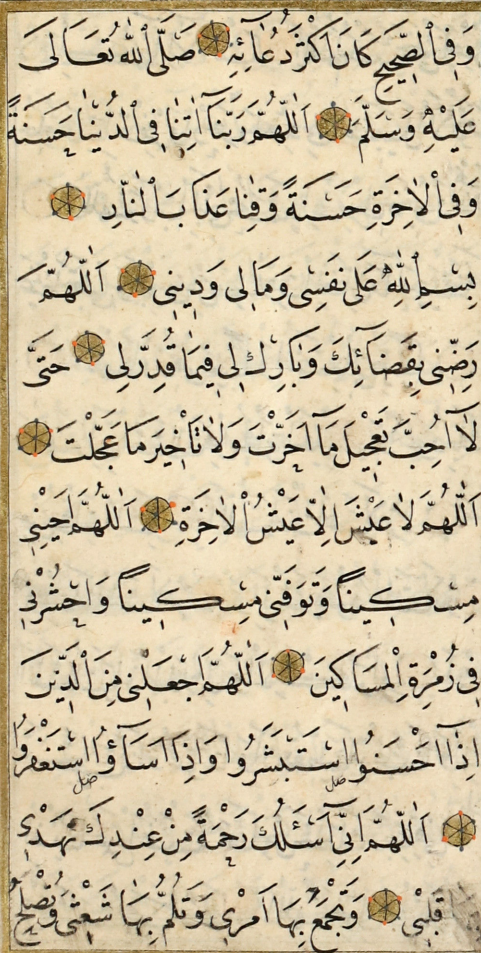 وَفِى الصَّحِيحِ كَانَ اَكْثَرُ دُعَائِهِ صَلَّى اللهُ تَعَالَى
عَلَيْهِ وَسَلَّمَ اَللّٰهُمَّ رَبَّنَا اٰتِنَا فِى الدُّنْيَا حَسَنَةً
وَفِى الْاٰخِرَةِ حَسَنَةً وَقِنَا عَذَابَ النَّارِ
بِسْمِ اللهِ عَلَى نَفْسِى وَمَالِى وَدِينِى اَللّٰهُمَّ
رَضِّنِى بِقَضَائِكَ وَبَارِكْ لِى فِيمَا قُدِّرَ لِى حَتَّى
لَا اُحِبَّ تَعْجِيلَ مَا اَخَّرْتَ وَلَا تَأْخِيرَ مَا عَجَّلْتَ
اَللّٰهُمَّ لَا عَيْشَ اِلَّا عَيْشُ الْاٰخِرَةِ اَللّٰهُمَّ اَحْيِنِى
مِسْكِينًا وَتَوَفَّنِى مِسْكِينًا وَاحْشُرْنِى
فِى زُمْرَةِ الْمَسَاكِينَ اَللّٰهُمَّ اجْعَلْنِى مِنَ الَّذِينَ
اِذَا اَحْسَنُوا اسْتَبْشَرُوا وَاِذَا اَسَاؤُا اسْتَغْفَرُوا
صل صل
اَللّٰهُمَّ اِنِّى اَسْئَلُكَ رَحْمَةً مِنْ عِنْدِكَ تَهْدِى
قَلْبِى وَتَجْمَعُ بِهَا اَمْرِى وَتَلُمُّ بِهَا شَعْثِى وَتُصْلِحُ